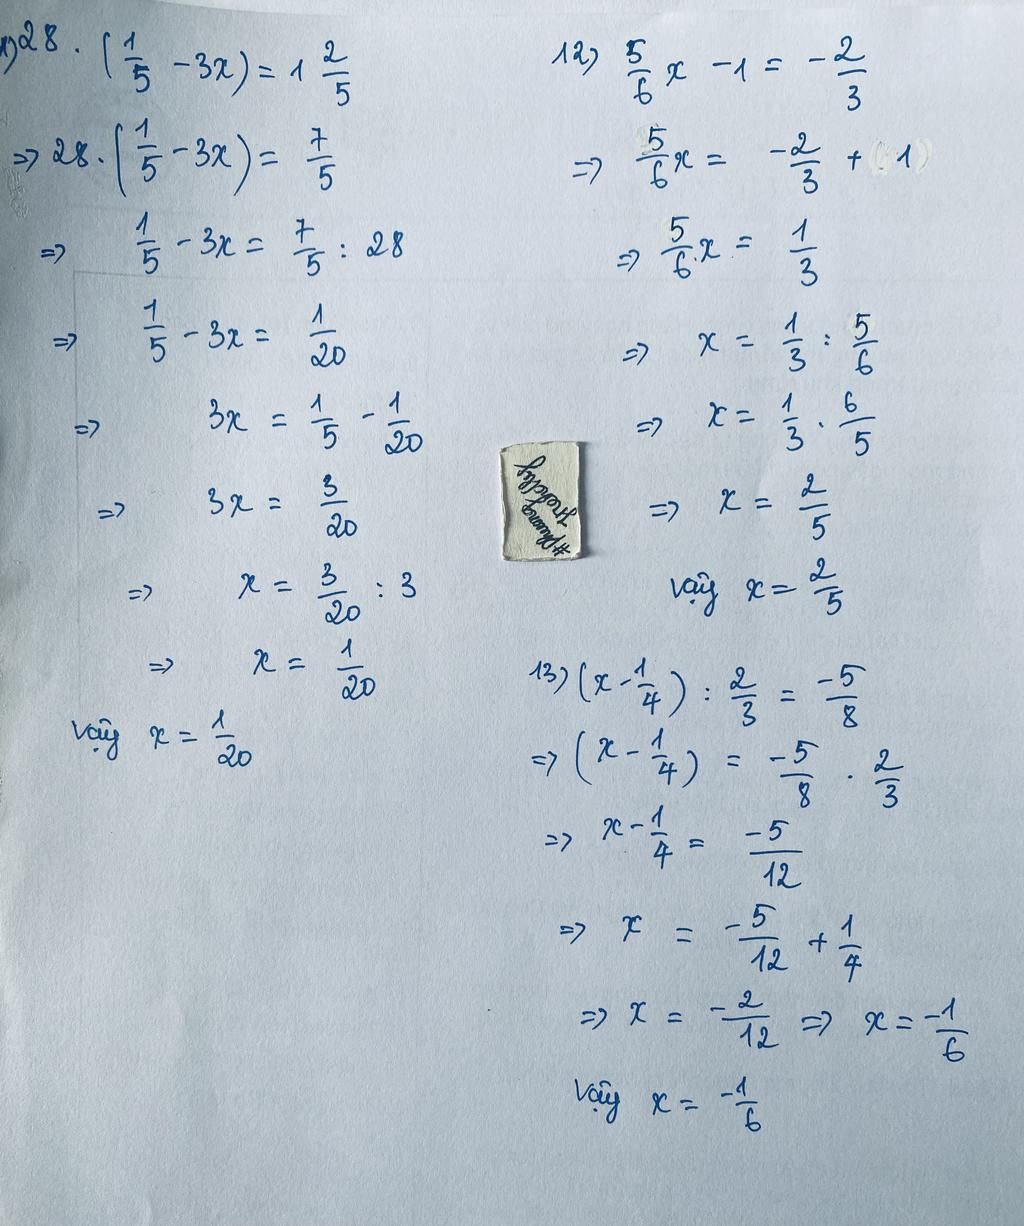 28 . (1/5 - 3x) = 1 2/5
=> 28. (1/5 - 3x) = 7/5
=> 1/5 - 3x = 7/5 : 28
=> 1/5 - 3x = 1/20
=> 3x = 1/5 - 1/20
=> 3x = 3/20
=> x = 3/20 : 3
=> x = 1/20
Vậy x = 1/20
12) 5/6 x - 1 = -2/3
=> 5/6 x = -2/3 + 1
=> 5/6 . x = 1/3
=> x = 1/3 : 5/6
=> x = 1/3 . 6/5
=> x = 2/5
Vậy x = 2/5
#phuong
13) (x - 1/4) : 2/3 = -5/8
=> (x - 1/4) = -5/8 . 2/3
=> x - 1/4 = -5/12
=> x = -5/12 + 1/4
=> x = -2/12 => x = -1/6
Vậy x = -1/6